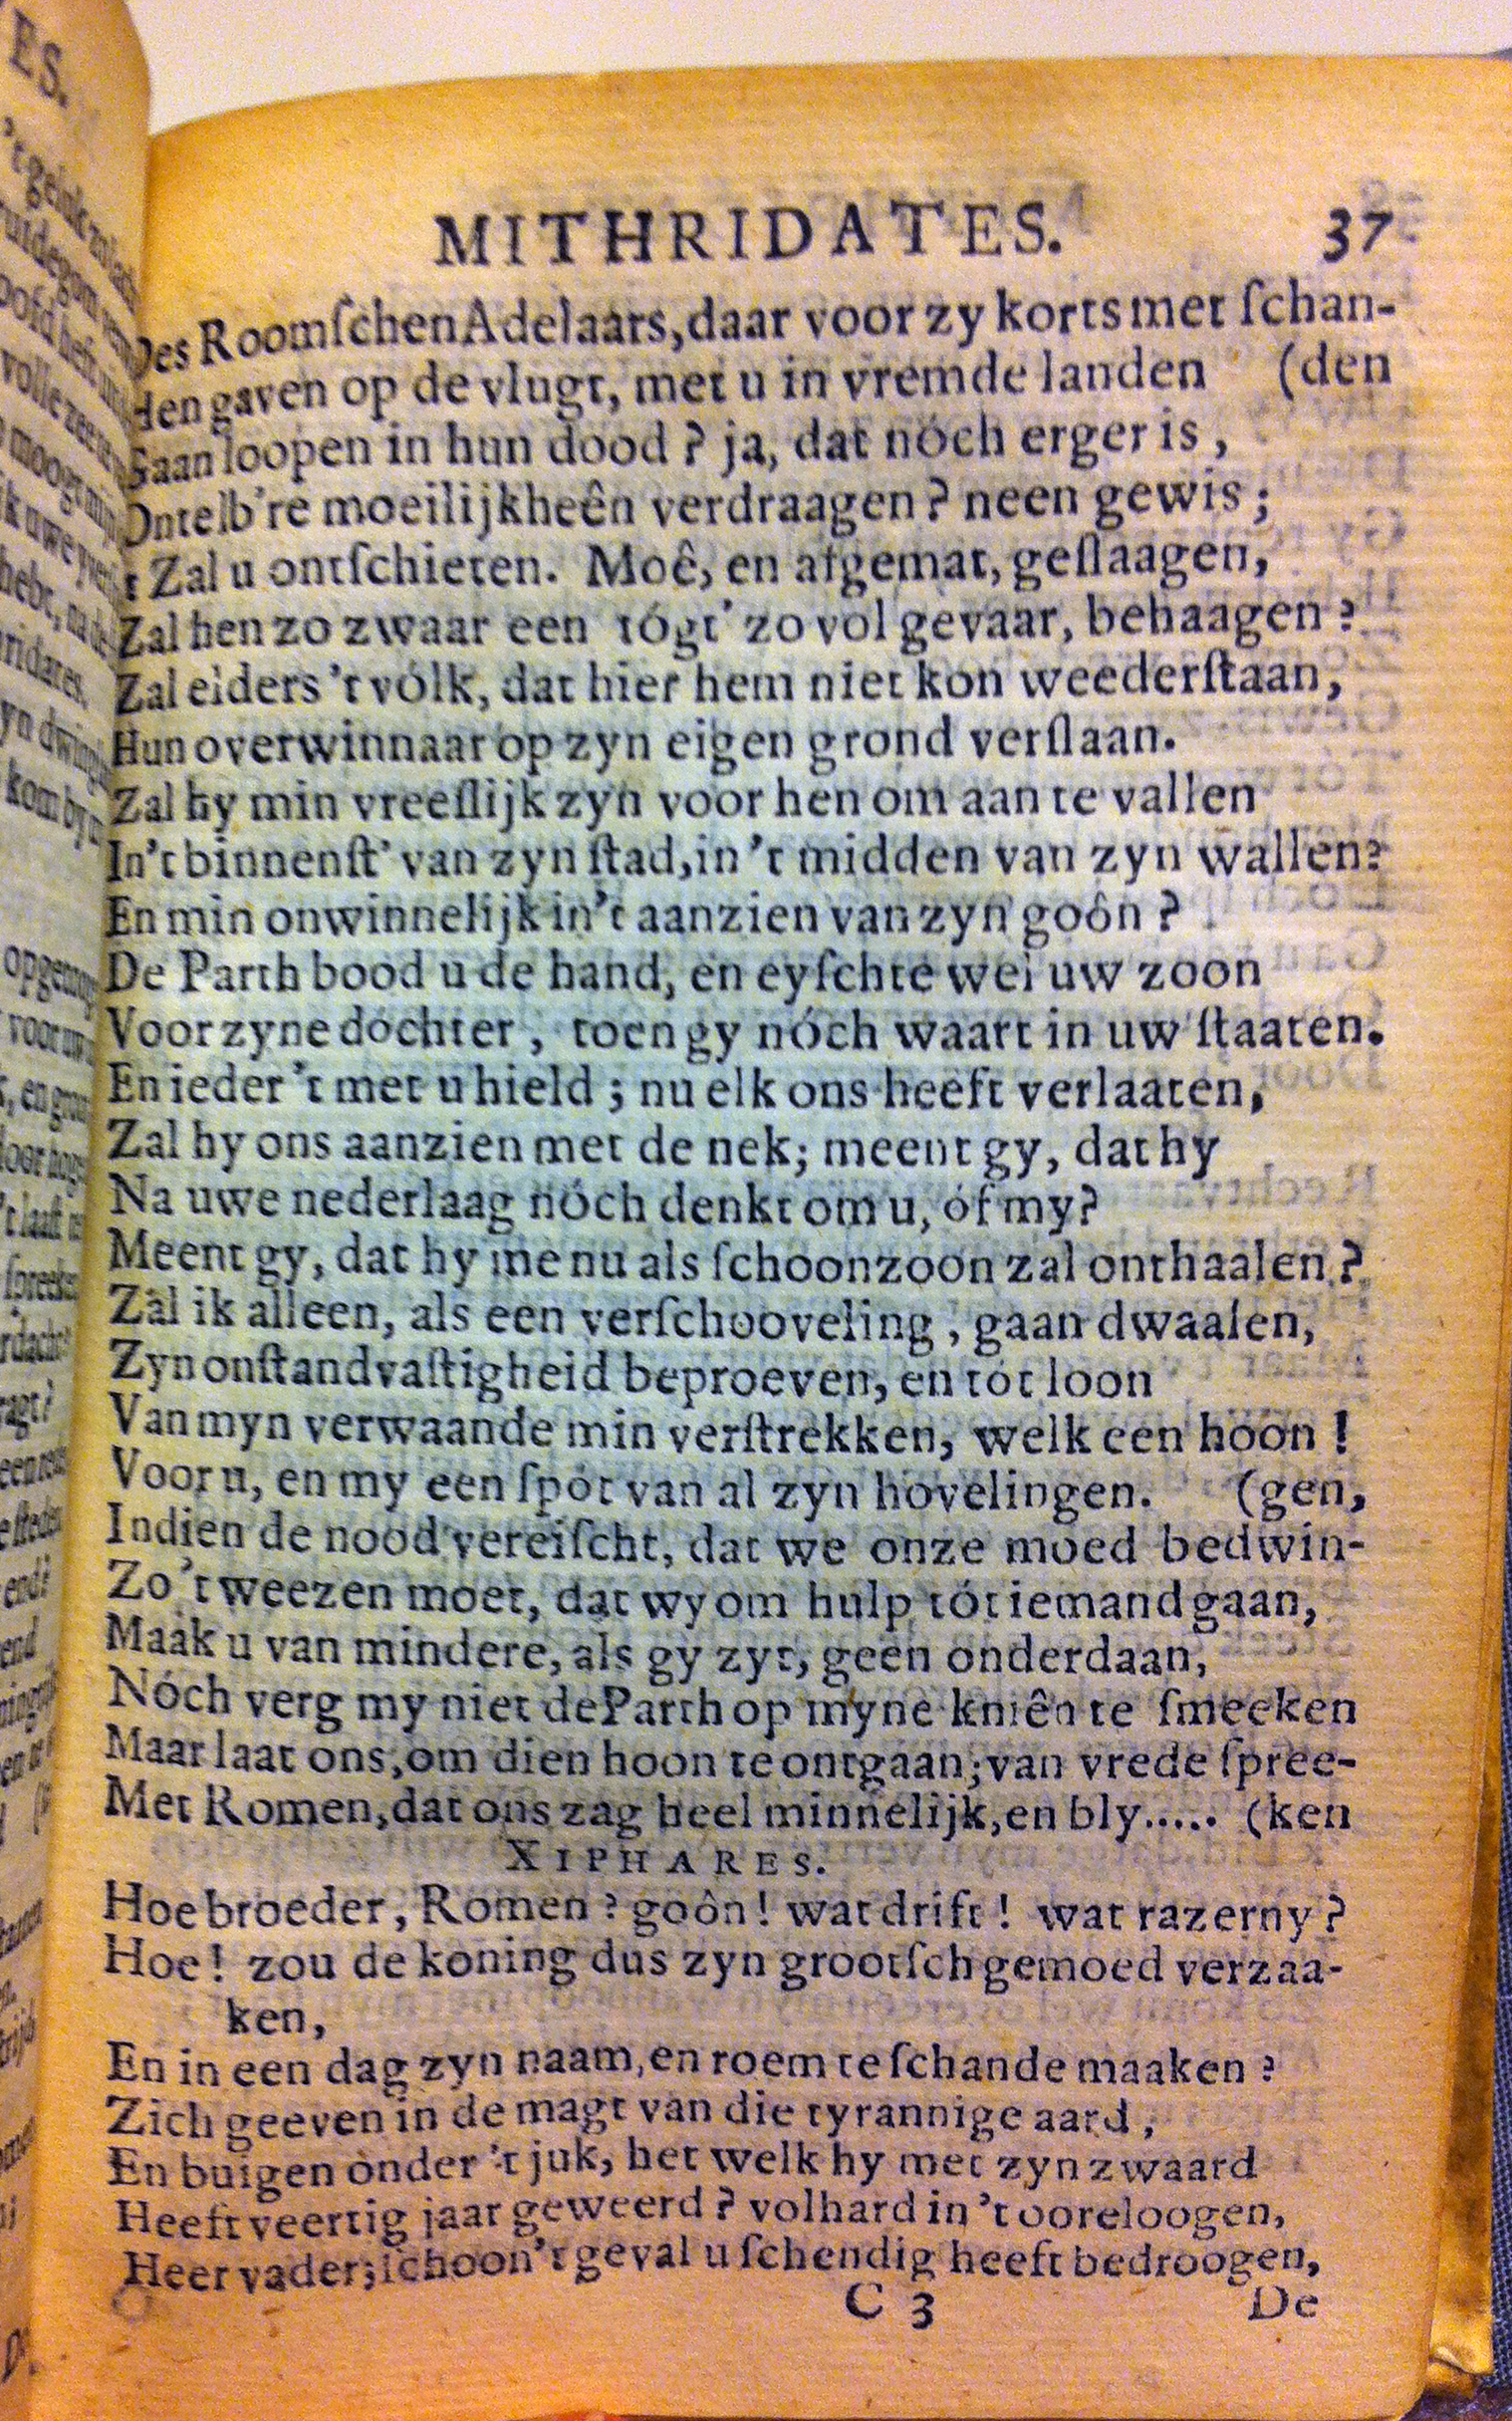 MITHRIDATES. 37
Des RoomſchenAdelaars, daar voor zy korts met ſchan-
Hen gaven op de vlugt, met u in vremde landen (den
Gaan loopen in hun dood? ja, dat nóch erger is,
Ontelb're moeilijkheên verdraagen? neen gewis;
't Zal u ontſchieten. Moê, en afgemat, geſlaagen,
Zal hen zo zwaar een tógt' zo vol gevaar, behaagen?
Zal elders 't vólk, dat hier hem niet kon weederſtaan,
Hun overwinnaar op zyn eigen grond verſlaan.
Zal hy min vreeſlijk zyn voor hen om aan te vallen
In't binnenſt' van zyn ſtad, in 't midden van zyn wallen?
En min onwinnelijk in't aanzien van zyn goôn?
De Parth bood u de hand, en eyſchte wel uw zoon
Voor zyne dochter, toen gy nóch waart in uw ſtaaten.
En ieder 't met u hield; nu elk ons heeft verlaaten,
Zal hy ons aanzien met de nek; meent gy, dat hy
Na uwe nederlaag nóch denkt om u, óf my?
Meent gy, dat hy me nu als ſchoonzoon zal onthaalen?
Zal ik alleen, als een verſchooveling, gaan dwaalen,
Zyn onſtandvaſtigheid beproeven, en tót loon
Van myn verwaande min verſtrekken, welk een hoon!
Voor u, en my een ſpót van al zyn hovelingen. (gen,
Indien de nood vereiſcht, dat we onze moed bedwin-
Zo 't weezen moet, dat wy om hulp tót iemand gaan,
Maak u van mindere, als gy zyt, geen onderdaan,
Nóch verg my niet de Parth op myne kniên te ſmeeken
Maar laat ons, om dien hoon te ontgaan; van vrede ſpree-
Met Romen, dat ons zag heel minnelijk, en bly..... (ken
XIPHARES.
Hoe broeder, Romen? goôn! wat drift! wat razerny?
Hoe! zou de koning dus zyn grootſch gemoed verzaa-
ken,
En in een dag zyn naam, en roem te ſchande maaken?
Zich geeven in de magt van die tyrannige aard,
En buigen onder 't juk, het welk hy met zyn zwaard
Heeft veertig jaar geweerd? volhard in 't ooreloogen,
Heer vader; ſchoon 't geval u ſchendig heeft bedroogen,
C 3 De